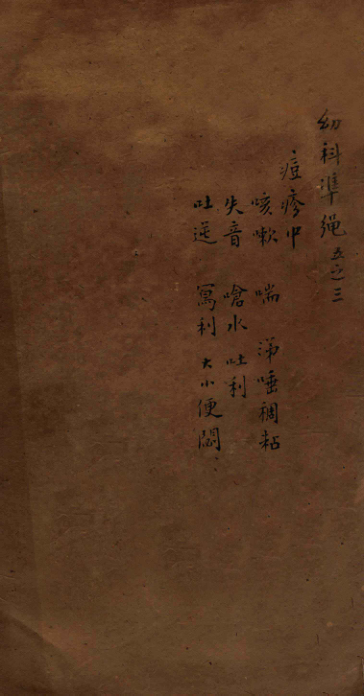 幼科準繩五之三
痘疹中
咳嗽 喘 涕唾稠粘
失音 嗆水 吐利
吐逆 瀉利 大小便閟